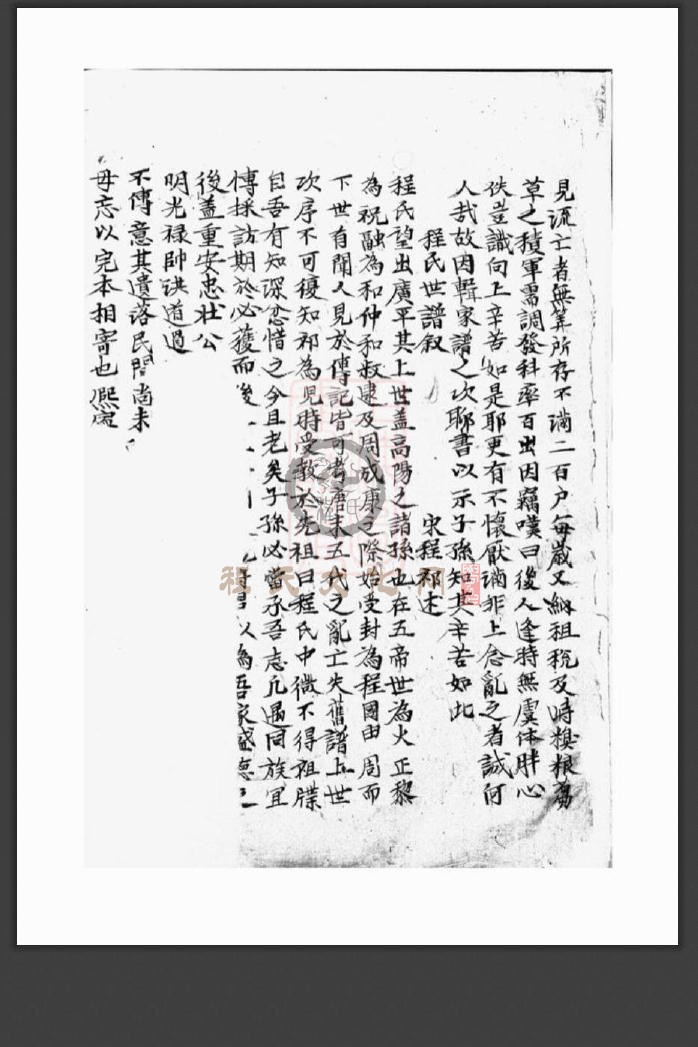 見流亡者無筭所存不滿二百户每歲又納租稅及時糗粮芻
草之積軍需調發科率百出因竊嘆曰後人逢時無虞体胖心
佚豈識向上辛苦如是耶更有不懷厭謫非上念亂之者誠何
人哉故因輯家譜之次聊書以示子孫知其辛苦如此
程氏世譜叙
宋程祁述
程氏望出廣平其上世盖高陽之諸孫也在五帝世為火正黎
為祝融為和仲和叔逮及周成康之際始受封為程國由周而
下世有聞人見於傳記皆可考唐末五代之亂亡失舊譜上世
次序不可復知祁為兒時受教於先祖曰程氏中微不得祖牒
自吾有知深忍惜之今且老矣子孫必當承吾志凢遇同族宜
博採訪期於必獲而後 以為吾家盛德之
後盖重安忠壮公
明光禄帥 道過
不傳意其遺落民間尚未
毋忘以完本相寄也熈寕
程氏文化网